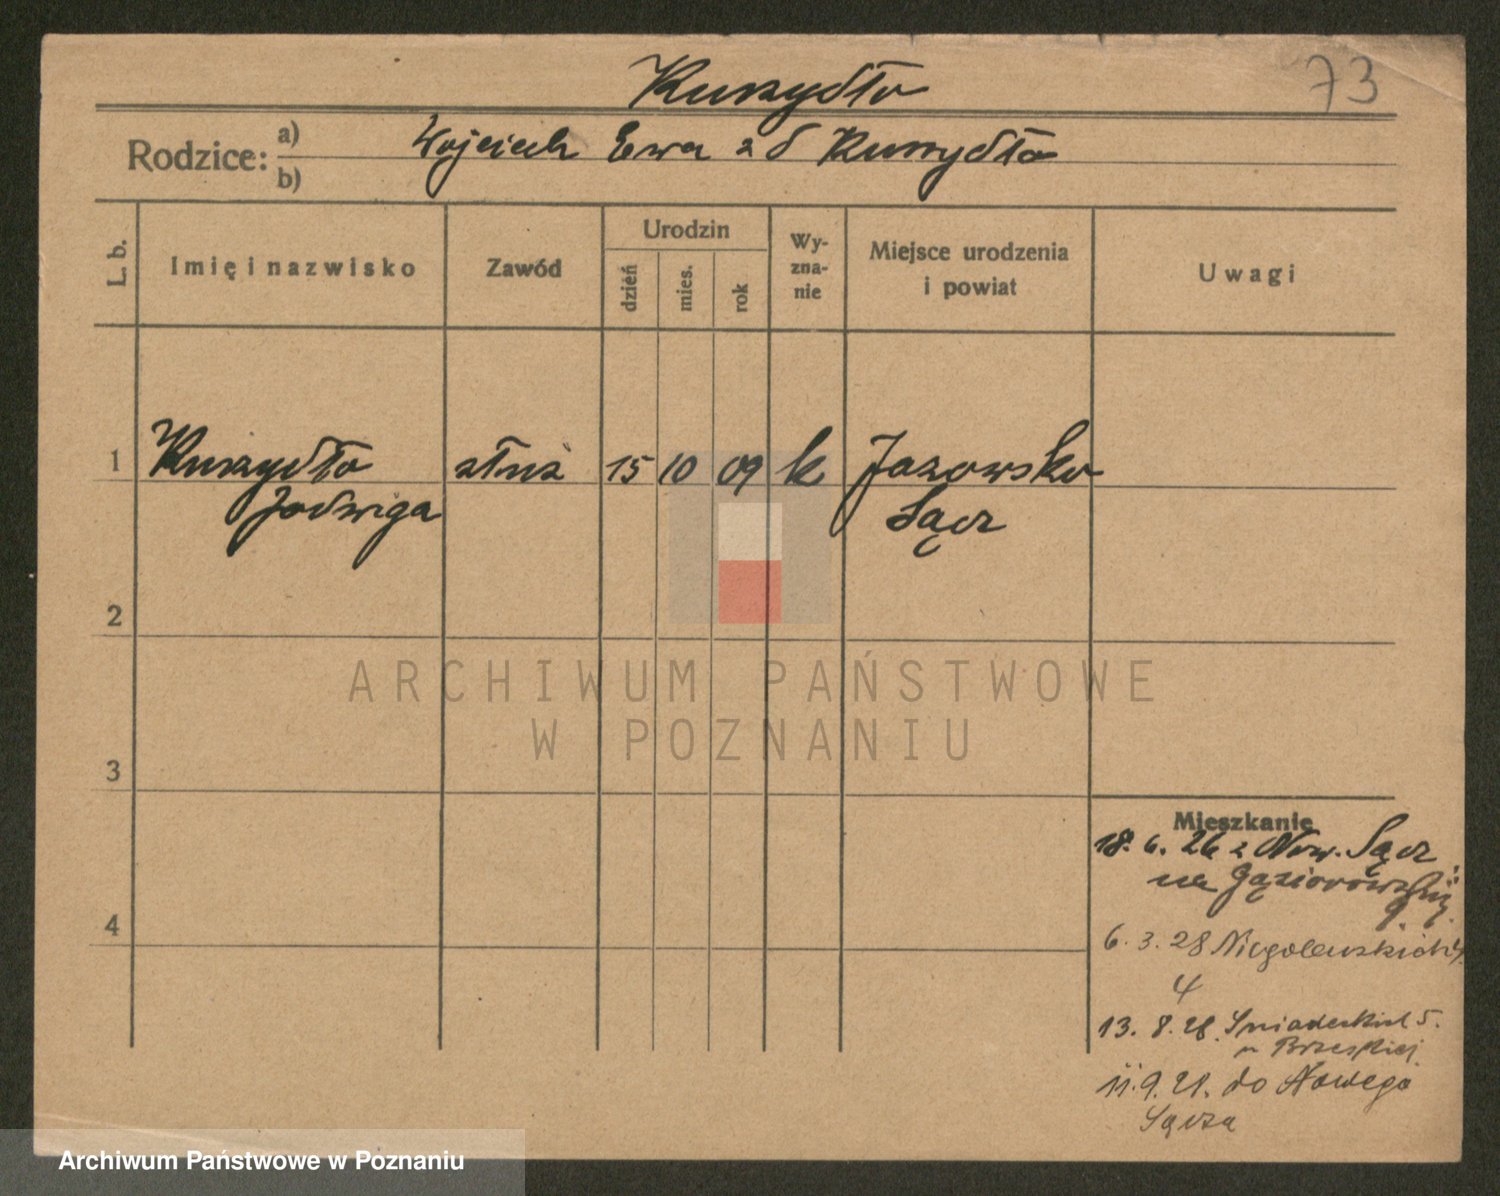 Kurzydło
73
Rodzice:
a) Wojciech Ewa z d Kurzydło
b)
L. b.
Imię i nazwisko
Zawód
Urodzin
dzień
mies.
rok
Wy-
zna-
nie
Miejsce urodzenia
i powiat
Uwagi
1 Kurzydło służ 15 10 09 k Jazowsko
Jadwiga Sącz
2
ARCHIWUM PAŃSTWOWE
W POZNANIU
3
Mieszkanie
18. 6. 26 z Now. Sącz
na Gąsiorowskich
9.
4
6. 3. 28 Niegolewskich
4
13. 8. 28. Śniadeckich 5.
11. 9. 28. do Nowego
Sącza
Archiwum Państwowe w Poznaniu